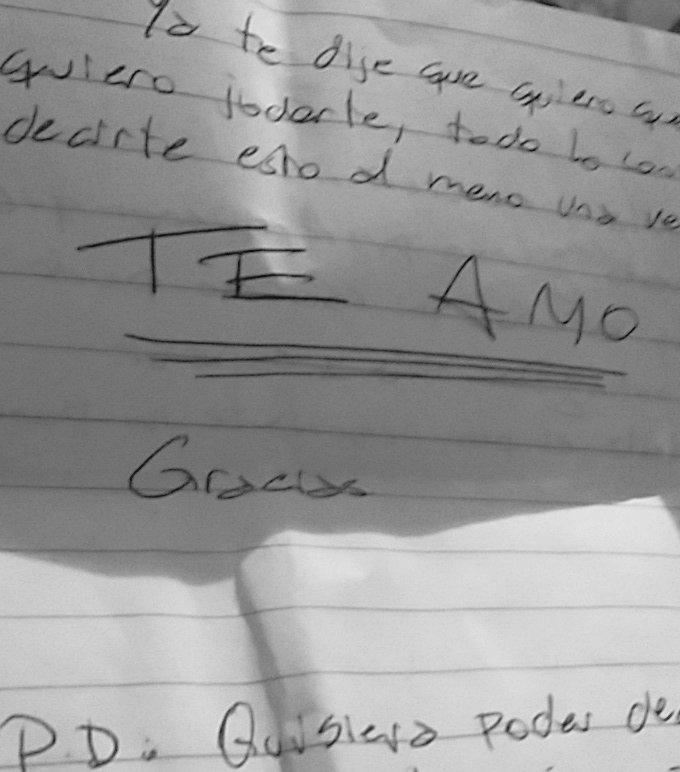 Ya te dije que quiero
quiero jodarte, todo lo
decirte esto al meno una ve
TE AMO
Gracias
P.D: Quisiera poder de